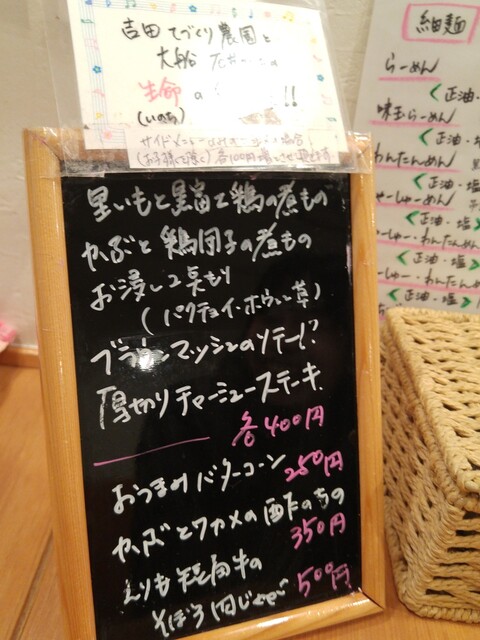 吉田てづくり農園と
大船
生命 の !!
(いのち)
サイドメニュー
(お子様で頂く) 各100円増
里いもと黒富士鶏の煮もの
かぶと鶏団子の煮もの
お浸し2点もり
(パクチョイ・ホウレン草)
ブラウンマッシュのソテー
厚切りチャーシューステーキ
各400円
おつまみバターコーン 250円
かぶとワカメの酢のもの
350円
えりも短角牛の
そぼろ肉じゃが 500円
細麺
らーめん
<正油・
味玉らーめん
<正油・塩
わんたんめん
<正油・塩
ちゃーしゅーめん
<正油・塩
ーしゅー・わんたんめん
<正油・塩>
しゅー・わんためん
<正油・塩>